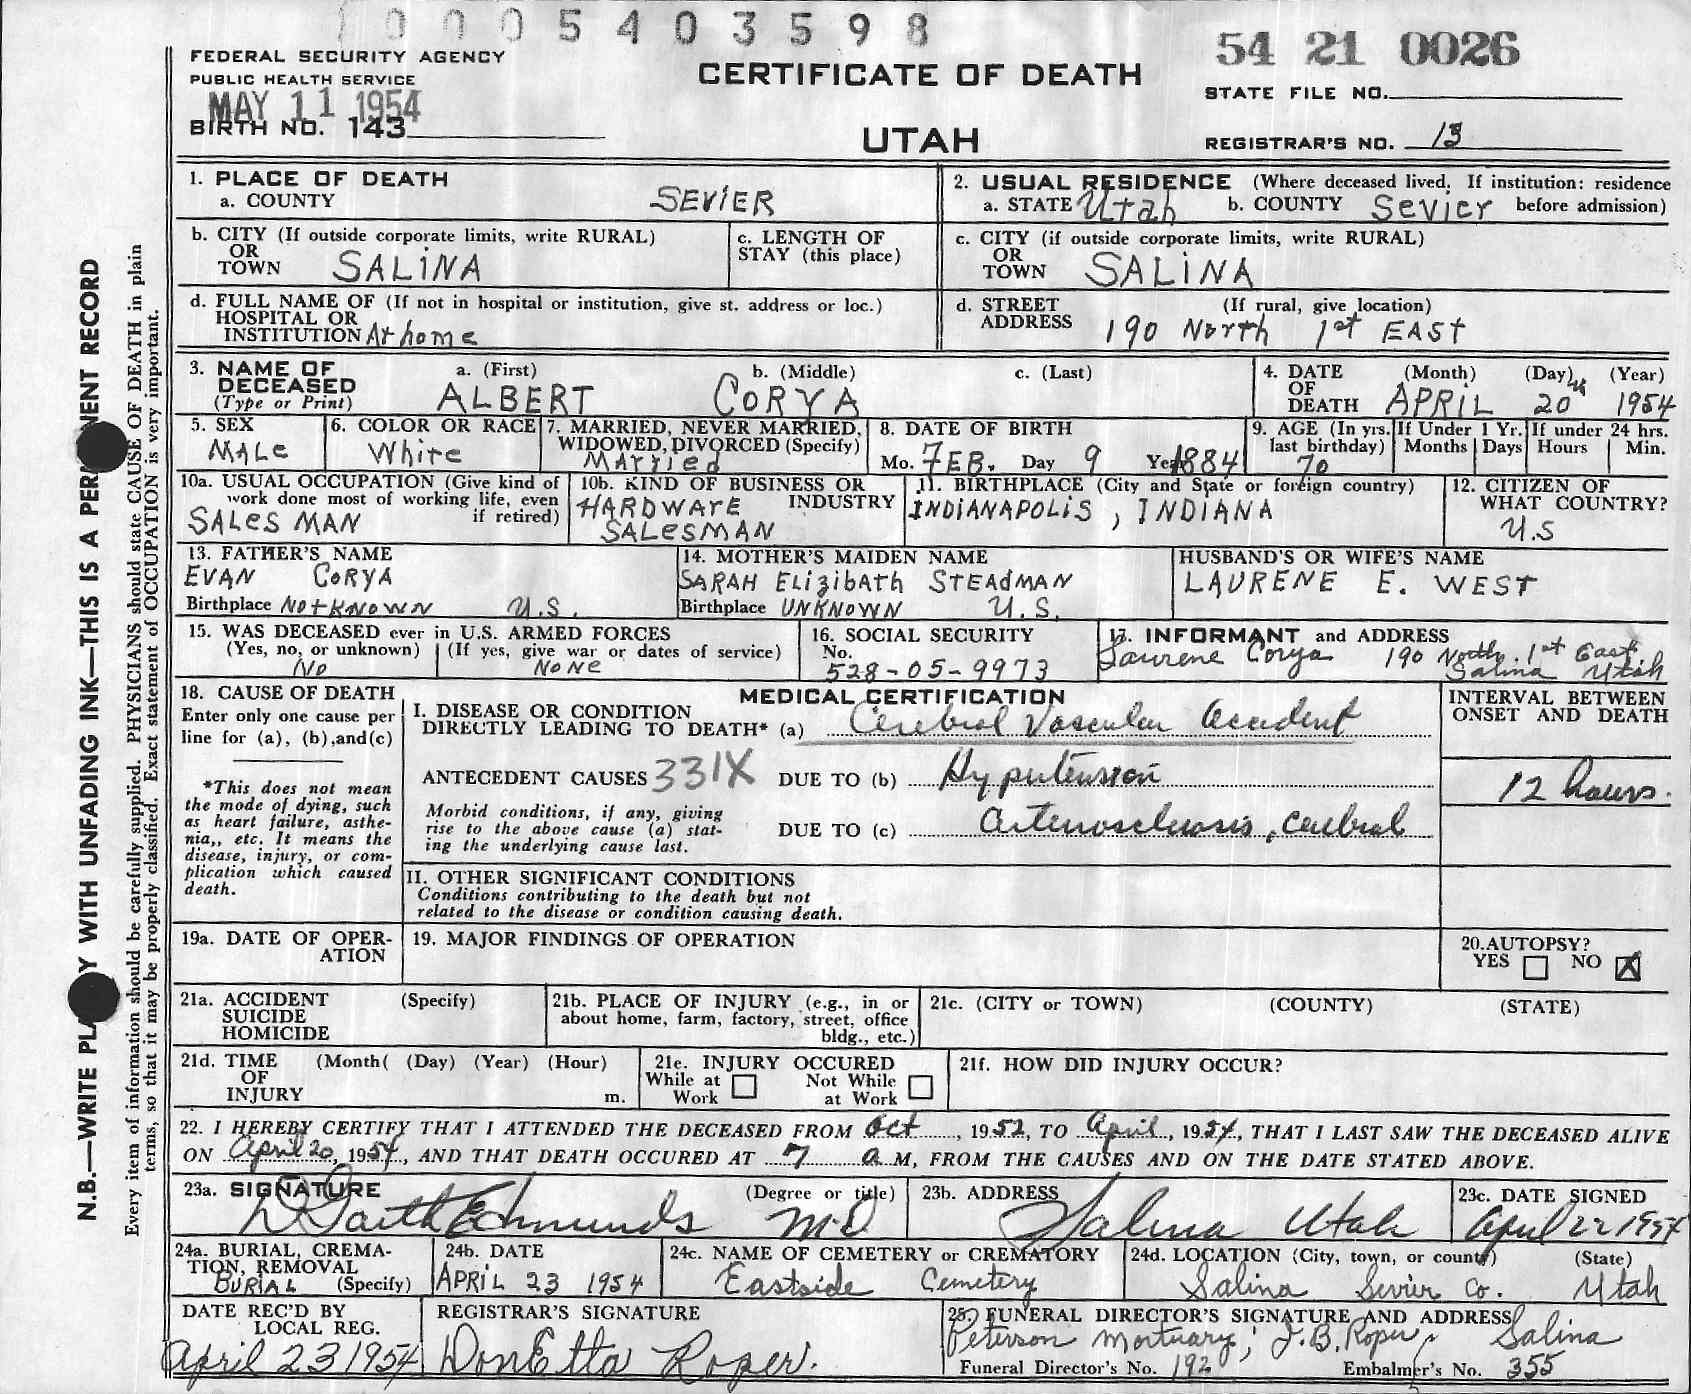 0005403598
FEDERAL SECURITY AGENCY
PUBLIC HEALTH SERVICE
MAY 11 1954
BIRTH NO. 143
CERTIFICATE OF DEATH
UTAH
54 21 0026
STATE FILE NO.
REGISTRAR'S NO. 13
N.B.—WRITE PLA Y WITH UNFADING INK—THIS IS A PER NENT RECORD
Every item of information should be carefully supplied. PHYSICIANS should state CAUSE OF DEATH in plain
terms, so that it may be properly classified. Exact statement of OCCUPATION is very important.
1. PLACE OF DEATH
a. COUNTY SEVIER
2. USUAL RESIDENCE (Where deceased lived. If institution: residence
a. STATE Utah b. COUNTY Sevier before admission)
b. CITY (If outside corporate limits, write RURAL)
OR
TOWN SALINA
c. LENGTH OF
STAY (this place)
c. CITY (if outside corporate limits, write RURAL)
OR
TOWN SALINA
d. FULL NAME OF (If not in hospital or institution, give st. address or loc.)
HOSPITAL OR
INSTITUTION At home
d. STREET (If rural, give location)
ADDRESS 190 North 1st EAST
3. NAME OF DECEASED
(Type or Print)
a. (First) b. (Middle) c. (Last)
ALBERT CORYA
4. DATE OF DEATH (Month) (Day) (Year)
APRIL 20th 1954
5. SEX
MALe
6. COLOR OR RACE
White
7. MARRIED, NEVER MARRIED,
WIDOWED, DIVORCED (Specify)
Married
8. DATE OF BIRTH
Mo. FEB. Day 9 Year 1884
9. AGE (In yrs. last birthday) 70
If Under 1 Yr. Months Days
If under 24 hrs. Hours Min.
10a. USUAL OCCUPATION (Give kind of
work done most of working life, even
if retired)
SALES MAN
10b. KIND OF BUSINESS OR
INDUSTRY
HARDWARE
SALESMAN
11. BIRTHPLACE (City and State or foreign country)
INDIANAPOLIS, INDIANA
12. CITIZEN OF
WHAT COUNTRY?
U.S
13. FATHER'S NAME
EVAN CORYA
Birthplace NotKNOWN U.S.
14. MOTHER'S MAIDEN NAME
SARAH Elizibath STEADMAN
Birthplace UNKNOWN U.S.
HUSBAND'S OR WIFE'S NAME
LAURENE E. WEST
15. WAS DECEASED ever in U.S. ARMED FORCES
(Yes, no, or unknown) (If yes, give war or dates of service)
No NONe
16. SOCIAL SECURITY
No.
528-05-9973
17. INFORMANT and ADDRESS
Laurene Corya 190 North 1st East
Salina Utah
18. CAUSE OF DEATH
Enter only one cause per
line for (a), (b), and (c)
*This does not mean
the mode of dying, such
as heart failure, asthe-
nia,, etc. It means the
disease, injury, or com-
plication which caused
death.
MEDICAL CERTIFICATION
I. DISEASE OR CONDITION
DIRECTLY LEADING TO DEATH* (a) Cerebral Vascular accident
ANTECEDENT CAUSES 331X DUE TO (b) Hypertension
Morbid conditions, if any, giving
rise to the above cause (a) stat-
ing the underlying cause last.
DUE TO (c) arteriosclerosis, cerebral
INTERVAL BETWEEN
ONSET AND DEATH
12 hours.
II. OTHER SIGNIFICANT CONDITIONS
Conditions contributing to the death but not
related to the disease or condition causing death.
19a. DATE OF OPER-
ATION
19. MAJOR FINDINGS OF OPERATION
20. AUTOPSY?
YES NO X
21a. ACCIDENT (Specify)
SUICIDE
HOMICIDE
21b. PLACE OF INJURY (e.g., in or
about home, farm, factory, street, office
bldg., etc.)
21c. (CITY or TOWN) (COUNTY) (STATE)
21d. TIME (Month( (Day) (Year) (Hour)
OF
INJURY m.
21e. INJURY OCCURED
While at Work Not While at Work
21f. HOW DID INJURY OCCUR?
22. I HEREBY CERTIFY THAT I ATTENDED THE DECEASED FROM Oct, 1952, TO April, 1954, THAT I LAST SAW THE DECEASED ALIVE
ON April 20, 1954, AND THAT DEATH OCCURED AT 7 a M, FROM THE CAUSES AND ON THE DATE STATED ABOVE.
23a. SIGNATURE (Degree or title)
D Garth Edmunds M.D
23b. ADDRESS
Salina Utah
23c. DATE SIGNED
April 22 1954
24a. BURIAL, CREMA-
TION, REMOVAL
BURIAL (Specify)
24b. DATE
APRIL 23 1954
24c. NAME OF CEMETERY or CREMATORY
Eastside Cemetery
24d. LOCATION (City, town, or county) (State)
Salina Sevier Co. Utah
DATE REC'D BY
LOCAL REG.
April 23 1954
REGISTRAR'S SIGNATURE
DonEtta Roper.
25. FUNERAL DIRECTOR'S SIGNATURE AND ADDRESS
Peterson Mortuary; J.B. Roper, Salina
Funeral Director's No. 192 Embalmer's No. 355